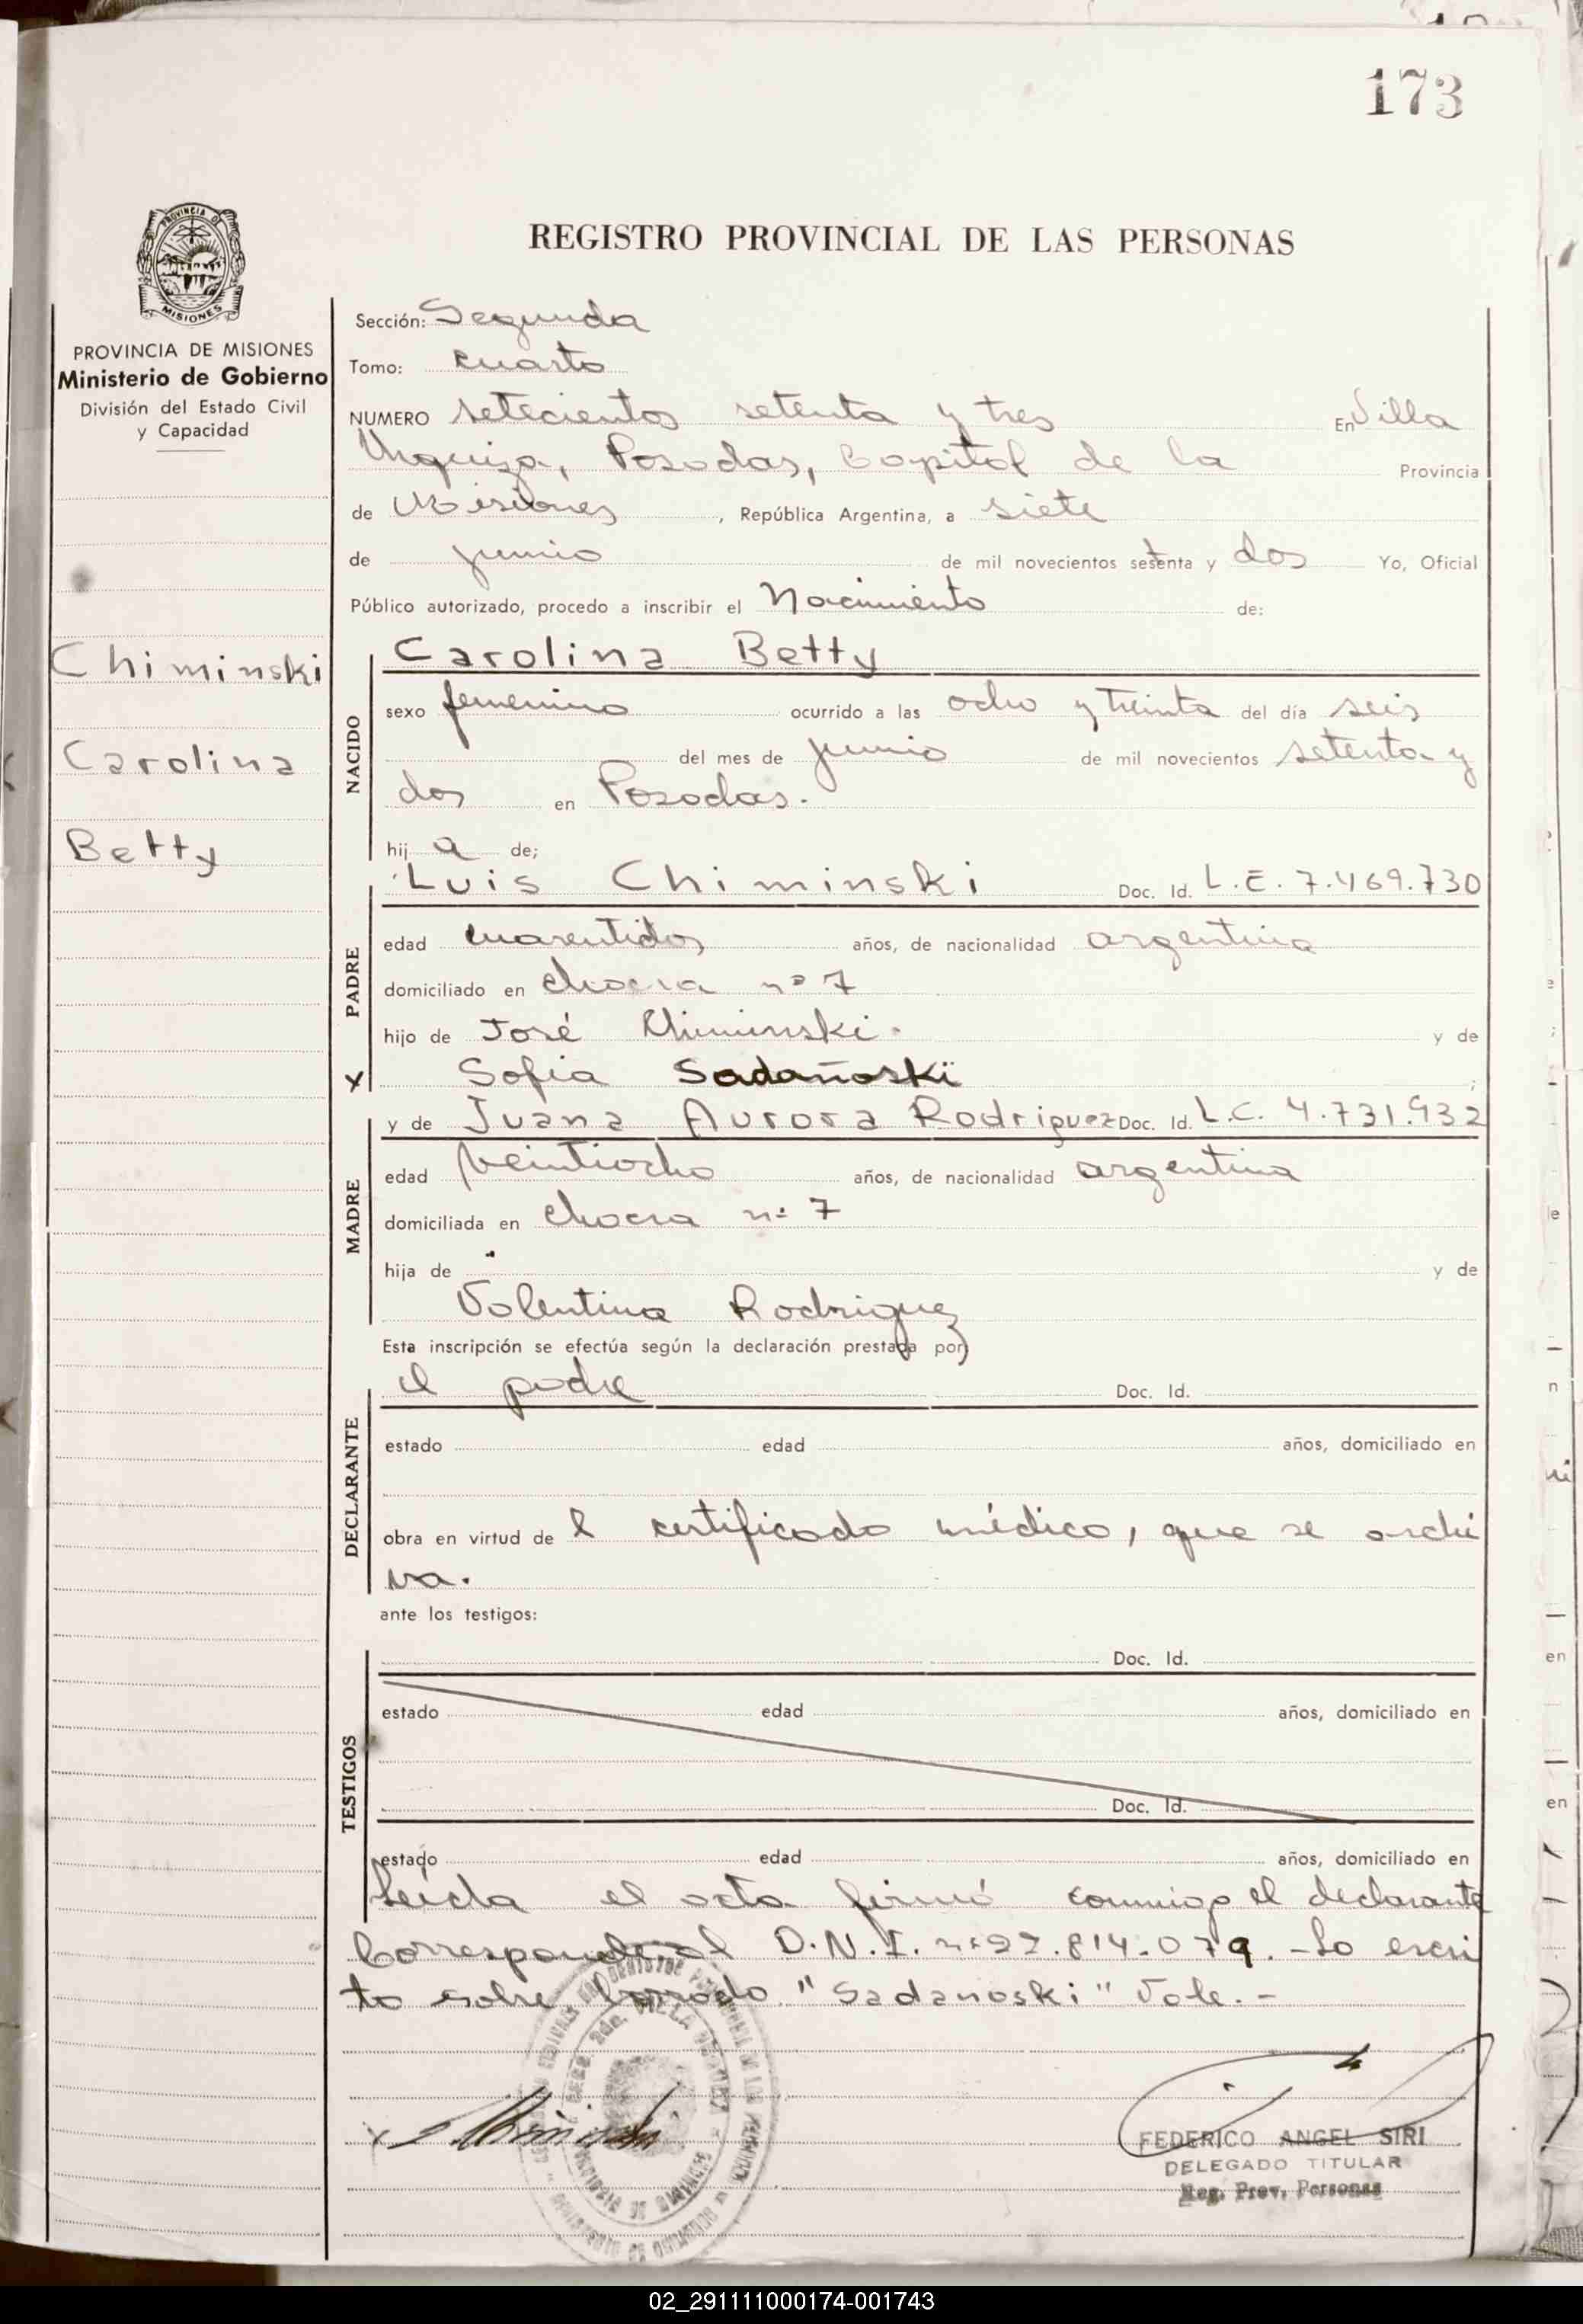 173
PROVINCIA DE MISIONES
MISIONES
PROVINCIA DE MISIONES
Ministerio de Gobierno
División del Estado Civil
y Capacidad
Chiminski
Carolina
Betty
REGISTRO PROVINCIAL DE LAS PERSONAS
Sección: Segunda
Tomo: cuarto
NUMERO setecientos setenta y tres En Villa
Urquiza, Posadas, Capital de la Provincia
de Misiones, República Argentina, a siete
de junio de mil novecientos setenta y dos Yo, Oficial
Público autorizado, procedo a inscribir el Nacimiento de:
NACIDO
Carolina Betty
sexo femenino ocurrido a las ocho y treinta del día seis
del mes de junio de mil novecientos setenta y
dos en Posadas.
hij a de;
PADRE
Luis Chiminski Doc. Id. L.E. 7.469.730
edad cuarentidos años, de nacionalidad argentina
domiciliado en chacra nº 7
hijo de José Chiminski. y de
x Sofia Sadanoski ;
MADRE
y de Juana Aurora Rodriguez Doc. Id. L.C. 4.731.932
edad veintiocho años, de nacionalidad argentina
domiciliada en chacra nº 7
hija de y de
Valentina Rodriguez
Esta inscripción se efectúa según la declaración prestada por
DECLARANTE
el padre Doc. Id.
estado edad años, domiciliado en
obra en virtud de l certificado médico, que se archi
va.
ante los testigos:
TESTIGOS
Doc. Id.
estado edad años, domiciliado en
Doc. Id.
estado edad años, domiciliado en
Leída el acta firmó conmigo el declarante
Corresponde al D.N.I. nº 92.814.079. - Lo escri
to sobre borrado "Sadanoski" Vale. -
FEDERICO ANGEL SIRI
DELEGADO TITULAR
Reg. Prov. Personas
02_291111000174-001743